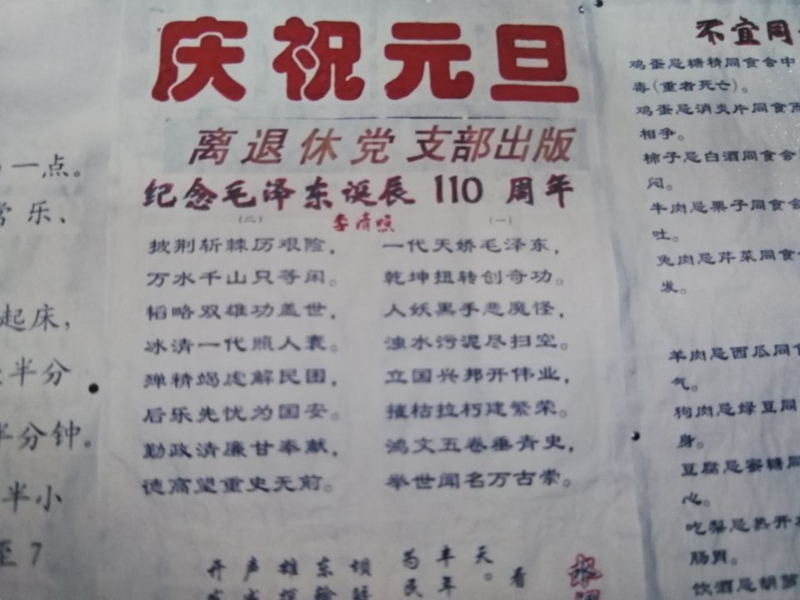 一点。
常乐、
起床,
半分
半分钟。
半小
至7
庆祝元旦
离退休党支部出版
纪念毛泽东诞辰110周年
(二)
披荆斩棘历艰险,
万水千山只等闲。
韬略双雄功盖世,
冰清一代照人寰。
殚精竭虑解民困,
后乐先忧为国安。
勤政清廉甘奉献,
德高望重史无前。
(一)
一代天娇毛泽东,
乾坤扭转创奇功。
人妖黑手悲魔怪,
浊水污泥尽扫空。
立国兴邦开伟业,
摧枯拉朽建繁荣。
鸿文五卷垂青史,
举世闻名万古崇。
天。看
丰年
为民
东
雄
声
开
不宜同
鸡蛋忌糖精同食会中
毒(重者死亡)。
鸡蛋忌消炎片同食而
相争。
柿子忌白酒同食会
闷。
牛肉忌栗子同食会
吐。
兔肉忌芹菜同食
发。
羊肉忌西瓜同食
气。
狗肉忌绿豆同
身。
豆腐忌蜜糖同
心。
吃梨忌热开
肠胃。
饮酒忌胡萝